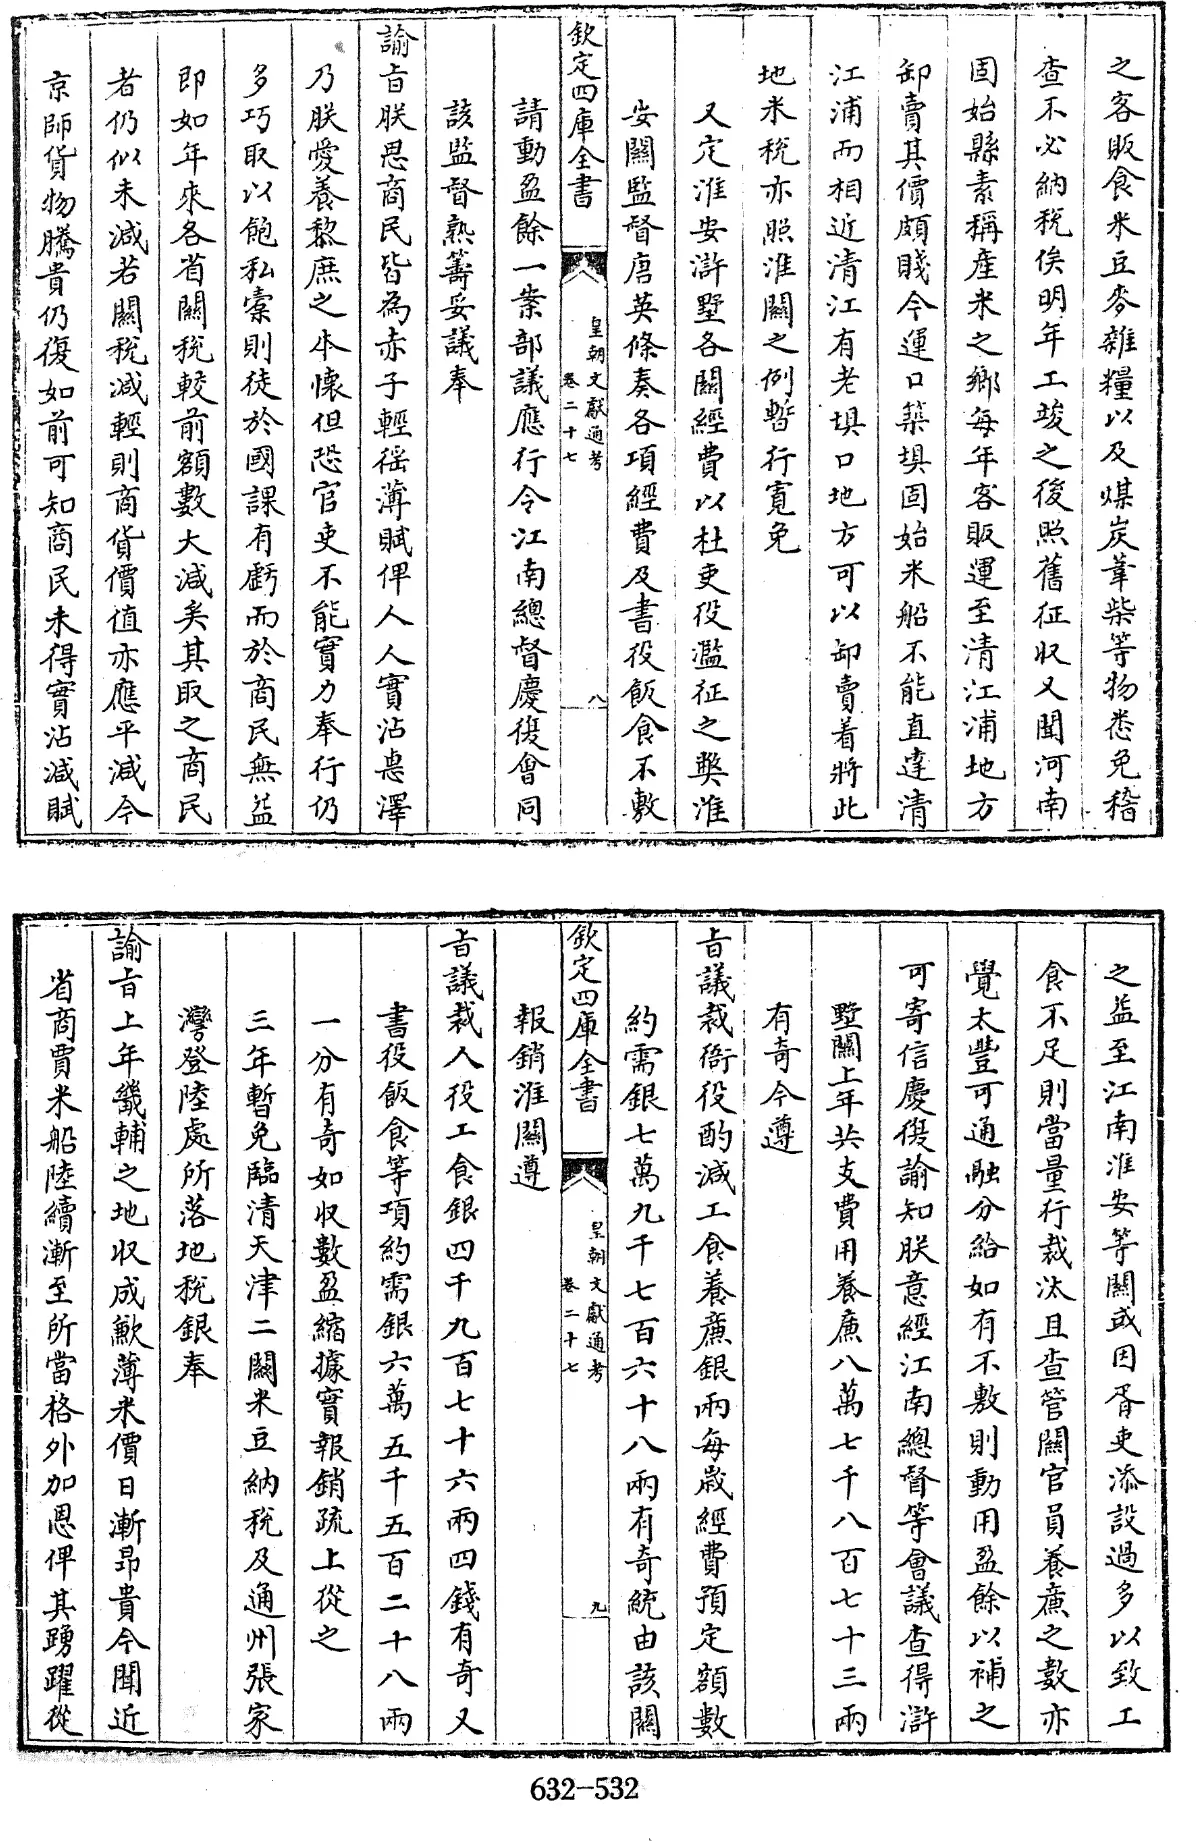 之客販食米豆麥雜糧以及煤炭葦柴等物悉免稽
查不必納稅俟明年工竣之後照舊征收又聞河南
固始縣素稱産米之鄉每年客販運至清江浦地方
卸賣其價頗賤今運口築垻固始米船不能直達清
江浦而相近清江有老垻口地方可以卸賣着將此
地米稅亦照淮關之例暫行寛免
又定淮安滸墅各關經費以杜吏役濫征之弊淮
安關監督唐英條奏各項經費及書役飯食不敷
欽定四庫全書
皇朝文獻通考
卷二十七
八
請動盈餘一案部議應行令江南總督慶復會同
該監督熟籌妥議奉
諭㫖朕思商民皆為赤子輕徭薄賦俾人人實沾恵澤
乃朕愛養黎庶之本懐但恐官吏不能實力奉行仍
多巧取以飽私槖則徒於國課有虧而於商民無益
即如年來各省關稅較前額數大減矣其取之商民
者仍似未減若關稅減輕則商貨價值亦應平減今
京師貨物騰貴仍復如前可知商民未得實沾減賦
之益至江南淮安等關或因胥吏添設過多以致工
食不足則當量行裁汰且查管關官員養廉之數亦
覺太豐可通融分給如有不敷則動用盈餘以補之
可寄信慶復諭知朕意經江南總督等會議查得滸
墅關上年共支費用養廉八萬七千八百七十三兩
有奇今遵
㫖議裁衙役酌減工食養廉銀兩每歲經費預定額數
約需銀七萬九千七百六十八兩有奇統由該關
欽定四庫全書
皇朝文獻通考
卷二十七
九
報銷淮關遵
㫖議裁人役工食銀四千九百七十六兩四錢有奇又
書役飯食等項約需銀六萬五千五百二十八兩
一分有奇如收數盈縮據實報銷疏上從之
三年暫免臨清天津二關米豆納稅及通州張家
灣登陸處所落地稅銀奉
諭㫖上年畿輔之地收成歉薄米價日漸昂貴今聞近
省商賈米船陸續漸至所當格外加恩俾其踴躍從
632-532